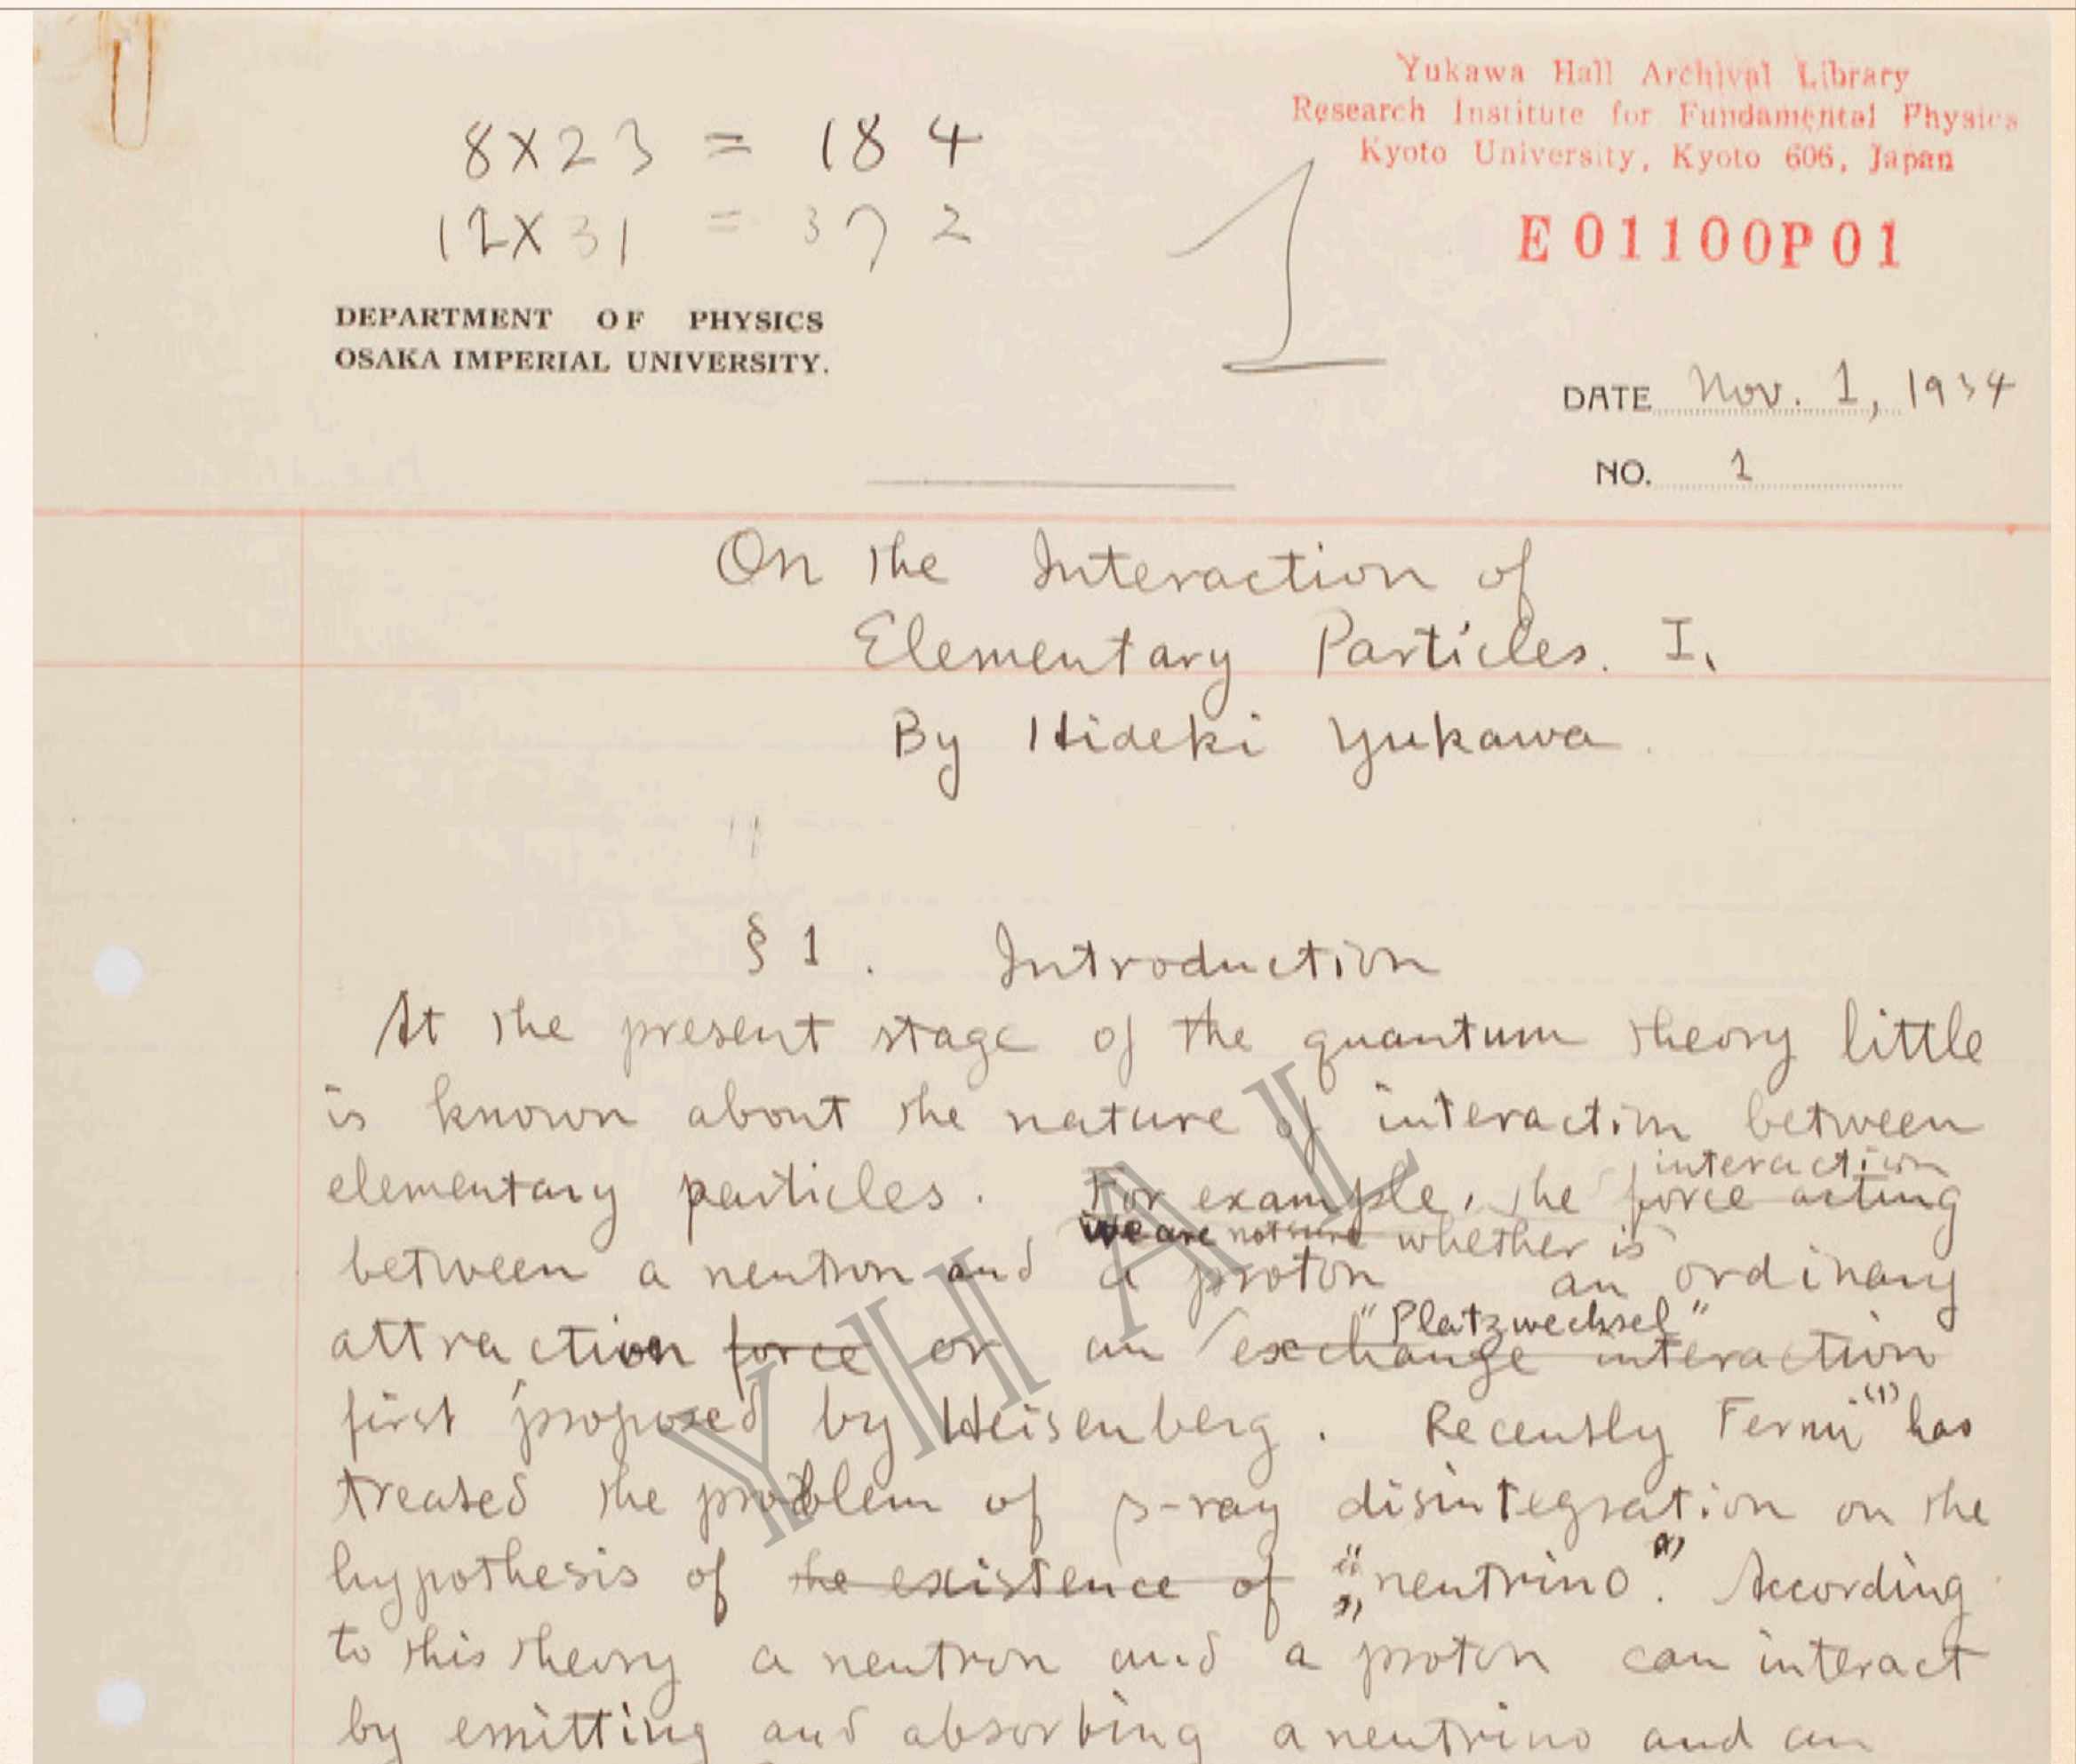 8×23 = 184
12×31 = 372
Yukawa Hall Archival Library
Research Institute for Fundamental Physics
Kyoto University, Kyoto 606, Japan
1
E01100P01
DEPARTMENT OF PHYSICS
OSAKA IMPERIAL UNIVERSITY.
DATE Nov. 1, 1934
NO. 1
On the Interaction of
Elementary Particles. I.
By Hideki Yukawa.
§ 1. Introduction
At the present stage of the quantum theory little
is known about the nature of interaction between
interaction
elementary particles. For example, the force acting
We are not sure whether is
between a neutron and a proton an ordinary
"Platzwechsel"
attraction force or an exchange interaction
first proposed by Heisenberg. Recently Fermi (1) has
treated the problem of β-ray disintegration on the
hypothesis of the existence of "neutrino". According
to this theory a neutron and a proton can interact
by emitting and absorbing a neutrino and an
YHAL